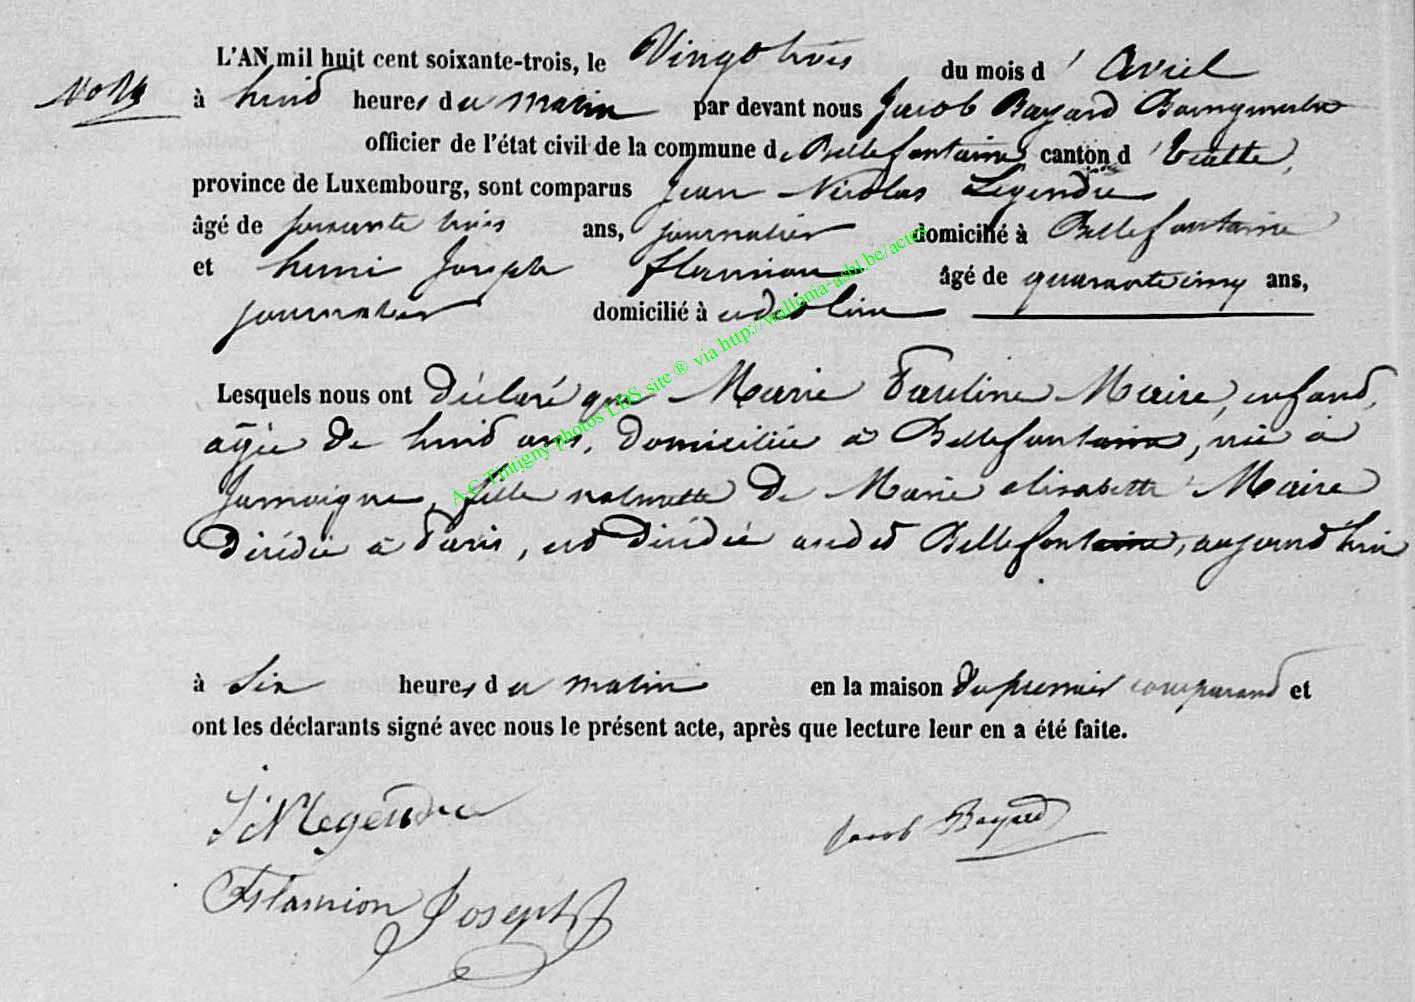 L'AN mil huit cent soixante-trois, le Vingt trois du mois d' Avril
à huit heures du matin par devant nous Jacob Bayard Bourgmestre
officier de l'état civil de la commune de Bellefontaine canton d'
province de Luxembourg, sont comparus Jean Nicolas Legendre
âgé de soixante trois ans, journalier domicilié à Bellefontaine
et henri Joseph flamion âgé de quarante cinq ans,
journalier domicilié à
Lesquels nous ont Déclaré que Marie Pauline Maire, enfant,
agée de huit ans, domiciliée à Bellefontaine, née à
Jamoigne, fille naturelle de Marie elisabeth Maire
Décédée à Paris, est Décédée Bellefontaine, aujourd'hui
à six heures du matin en la maison du premier comparant et
ont les déclarants signé avec nous le présent acte, après que lecture leur en a été faite.
JNLegendre
Jacob Bayard
Flamion Joseph
A.C. Tintigny photos LDS site ® via http://wallonia-asbl.be/actes